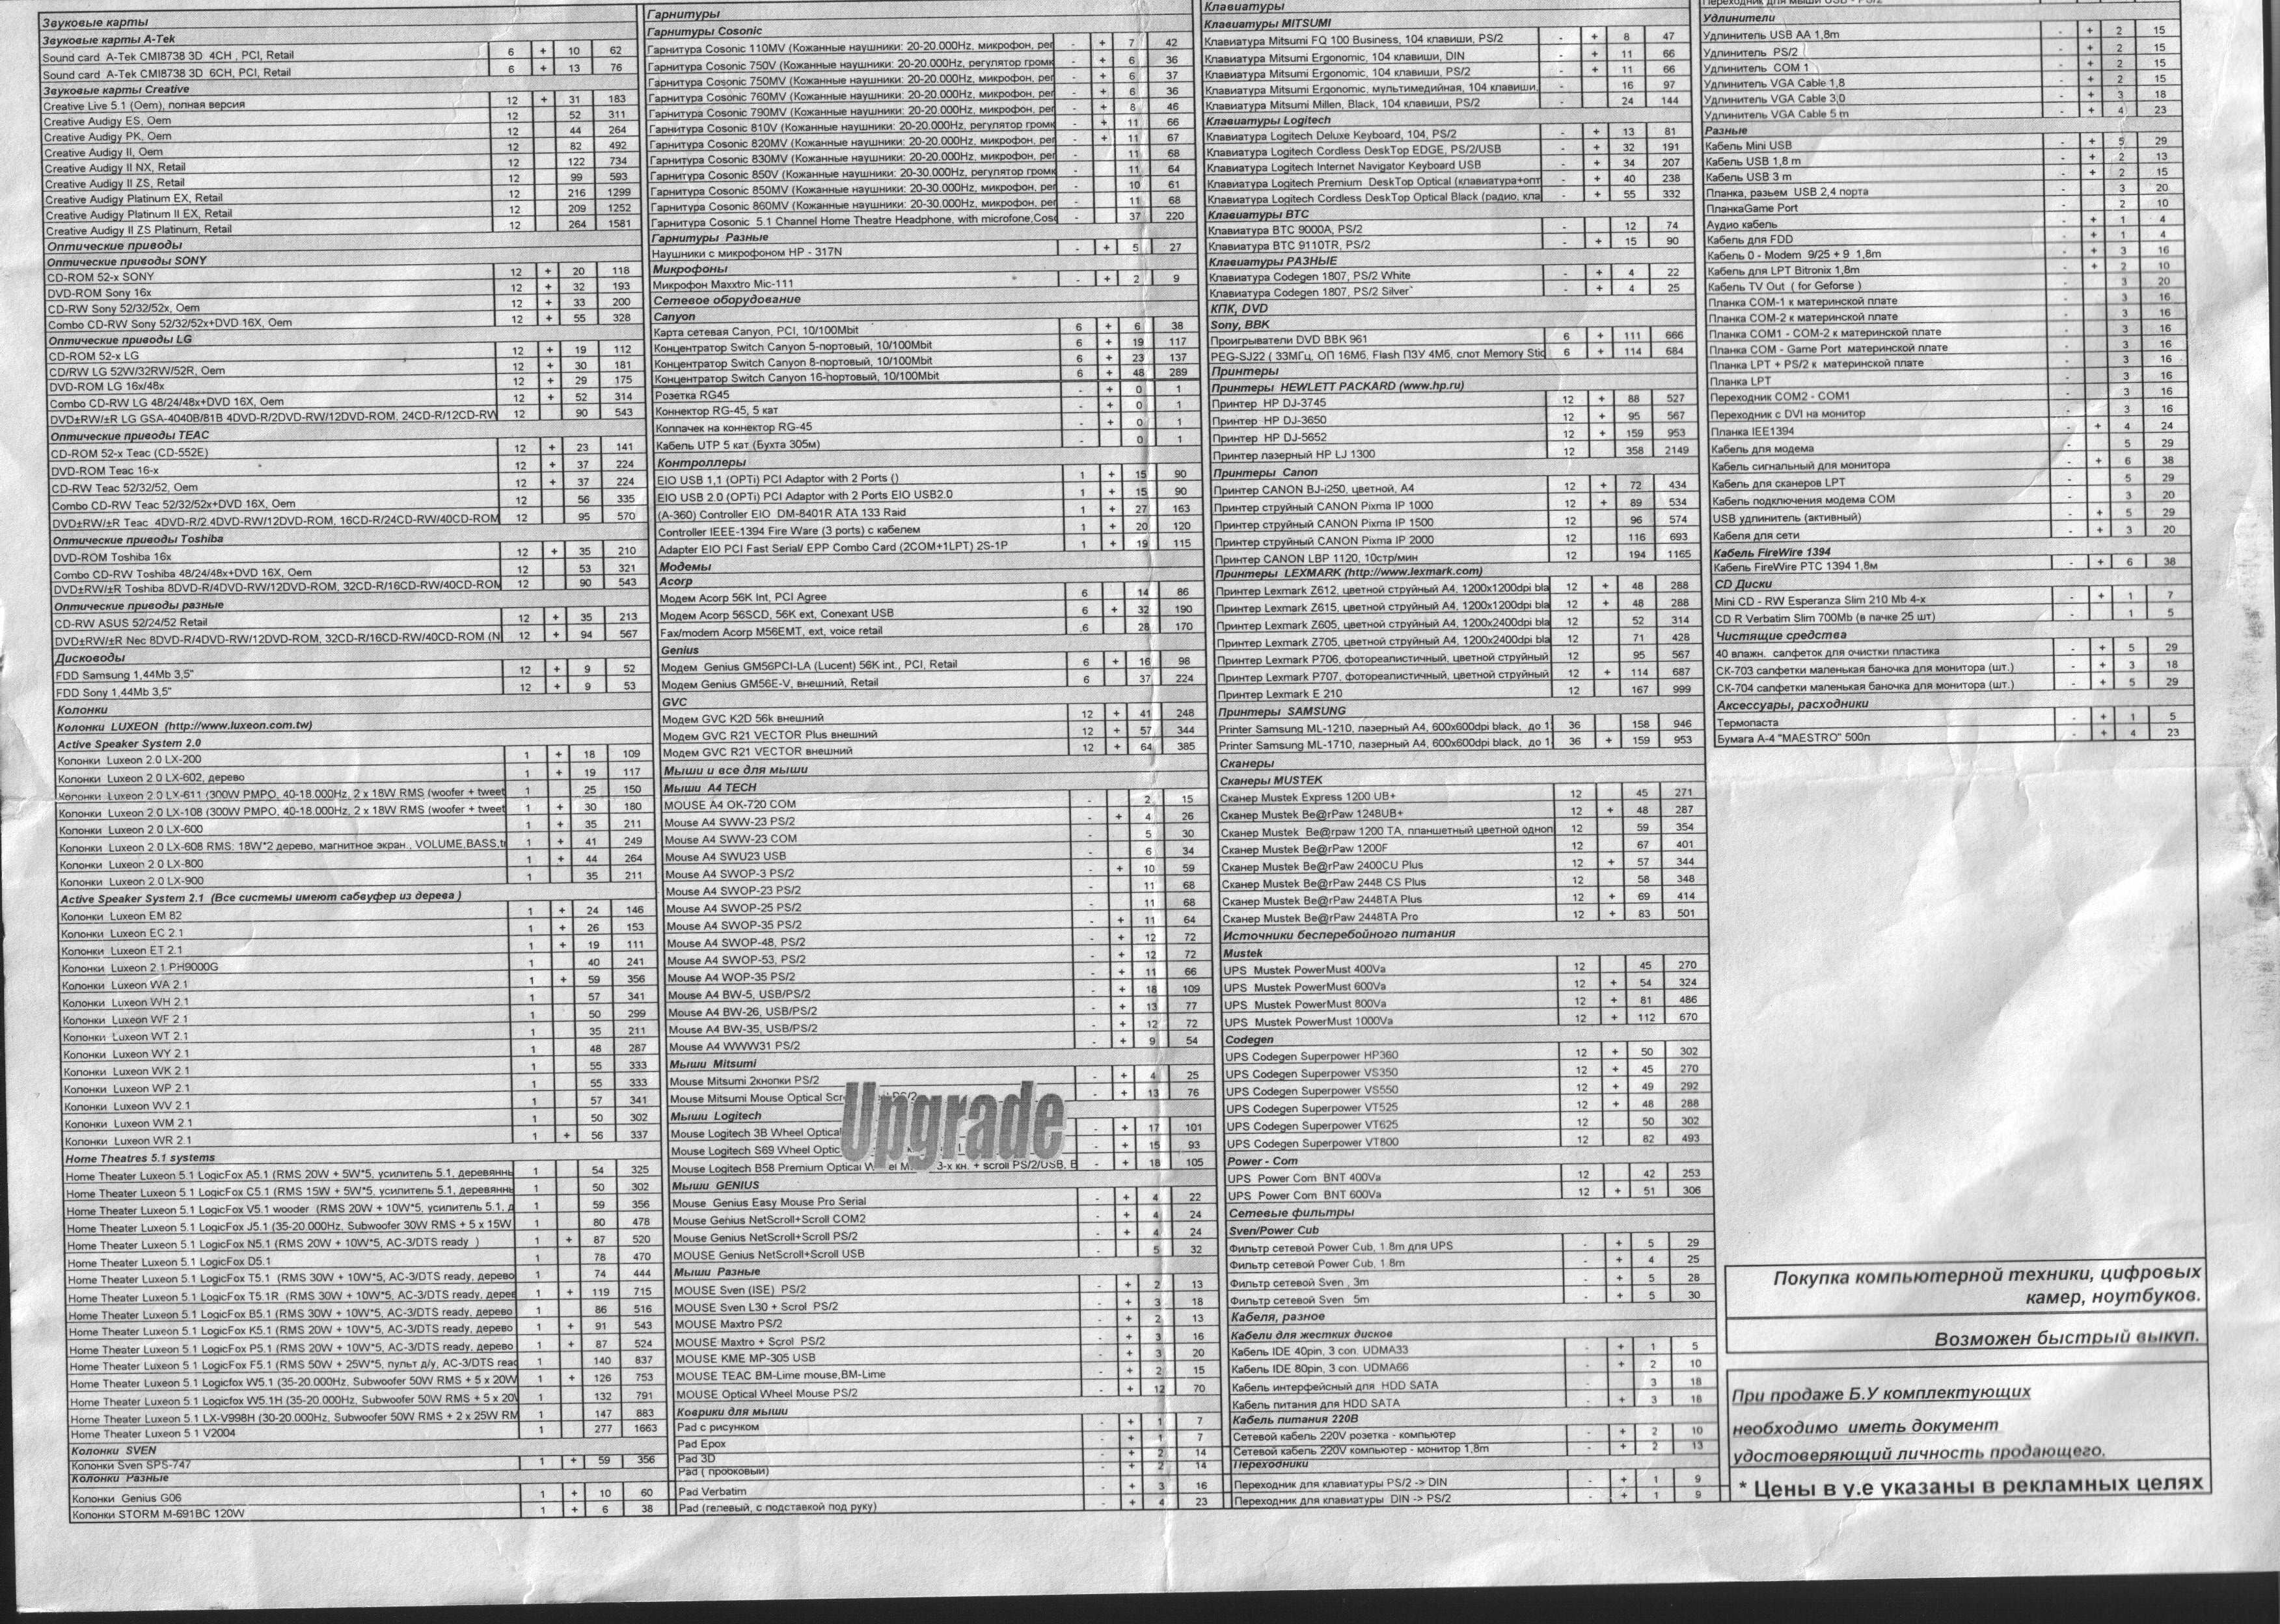 Звуковые карты
Звуковые карты A-Tek
Sound card A-Tek CMI8738 3D 4CH , PCI, Retail 6 + 10 62
Sound card A-Tek CMI8738 3D 6CH, PCI, Retail 6 + 13 76
Звуковые карты Creative
Creative Live 5.1 (Oem), полная версия 12 + 31 183
Creative Audigy ES, Oem 12 52 311
Creative Audigy PK, Oem 12 44 264
Creative Audigy II, Oem 12 82 492
Creative Audigy II NX, Retail 12 122 734
Creative Audigy II ZS, Retail 12 99 593
Creative Audigy Platinum EX, Retail 12 216 1299
Creative Audigy Platinum II EX, Retail 12 209 1252
Creative Audigy II ZS Platinum, Retail 12 264 1581
Оптические приводы
Оптические приводы SONY
CD-ROM 52-x SONY 12 + 20 118
DVD-ROM Sony 16x 12 + 32 193
CD-RW Sony 52/32/52x, Oem 12 + 33 200
Combo CD-RW Sony 52/32/52x+DVD 16X, Oem 12 + 55 328
Оптические приводы LG
CD-ROM 52-x LG 12 + 19 112
CD/RW LG 52W/32RW/52R, Oem 12 + 30 181
DVD-ROM LG 16x/48x 12 + 29 175
Combo CD-RW LG 48/24/48x+DVD 16X, Oem 12 + 52 314
DVD±RW/±R LG GSA-4040B/81B 4DVD-R/2DVD-RW/12DVD-ROM, 24CD-R/12CD-RW 12 90 543
Оптические приводы TEAC
CD-ROM 52-x Teac (CD-552E) 12 + 23 141
DVD-ROM Teac 16-x 12 + 37 224
CD-RW Teac 52/32/52, Oem 12 + 37 224
Combo CD-RW Teac 52/32/52x+DVD 16X, Oem 12 56 335
DVD±RW/±R Teac 4DVD-R/2.4DVD-RW/12DVD-ROM, 16CD-R/24CD-RW/40CD-ROM 12 95 570
Оптические приводы Toshiba
DVD-ROM Toshiba 16x 12 + 35 210
Combo CD-RW Toshiba 48/24/48x+DVD 16X, Oem 12 53 321
DVD±RW/±R Toshiba 8DVD-R/4DVD-RW/12DVD-ROM, 32CD-R/16CD-RW/40CD-ROM 12 90 543
Оптические приводы разные
CD-RW ASUS 52/24/52 Retail 12 + 35 213
DVD±RW/±R Nec 8DVD-R/4DVD-RW/12DVD-ROM, 32CD-R/16CD-RW/40CD-ROM (N 12 + 94 567
Дисководы
FDD Samsung 1,44Mb 3,5" 12 + 9 52
FDD Sony 1,44Mb 3,5" 12 + 9 53
Колонки
Колонки LUXEON (http://www.luxeon.com.tw)
Active Speaker System 2.0
Колонки Luxeon 2.0 LX-200 1 + 18 109
Колонки Luxeon 2 0 LX-602, дерево 1 + 19 117
Колонки Luxeon 2 0 LX-611 (300W PMPO, 40-18.000Hz, 2 x 18W RMS (woofer + tweet 1 25 150
Колонки Luxeon 2 0 LX-108 (300W PMPO, 40-18.000Hz, 2 x 18W RMS (woofer + tweet 1 + 30 180
Колонки Luxeon 2 0 LX-600 1 + 35 211
Колонки Luxeon 2 0 LX-608 RMS: 18W*2 дерево, магнитное экран., VOLUME,BASS,tr 1 + 41 249
Колонки Luxeon 2 0 LX-800 1 + 44 264
Колонки Luxeon 2 0 LX-900 1 35 211
Active Speaker System 2.1 (Все системы имеют сабвуфер из дерева )
Колонки Luxeon EM 82 1 + 24 146
Колонки Luxeon EC 2.1 1 + 26 153
Колонки Luxeon ET 2.1 1 + 19 111
Колонки Luxeon 2.1 PH9000G 1 40 241
Колонки Luxeon WA 2.1 1 + 59 356
Колонки Luxeon WH 2.1 1 57 341
Колонки Luxeon WF 2.1 1 50 299
Колонки Luxeon WT 2.1 1 35 211
Колонки Luxeon WY 2.1 1 48 287
Колонки Luxeon WK 2.1 1 55 333
Колонки Luxeon WP 2.1 1 55 333
Колонки Luxeon WV 2.1 1 57 341
Колонки Luxeon WM 2.1 1 50 302
Колонки Luxeon WR 2.1 1 + 56 337
Home Theatres 5.1 systems
Home Theater Luxeon 5.1 LogicFox A5.1 (RMS 20W + 5W*5, усилитель 5.1, деревяннь 1 54 325
Home Theater Luxeon 5.1 LogicFox C5.1 (RMS 15W + 5W*5, усилитель 5.1, деревяннь 1 50 302
Home Theater Luxeon 5.1 LogicFox V5.1 wooder (RMS 20W + 10W*5, усилитель 5.1, д 1 59 356
Home Theater Luxeon 5.1 LogicFox J5.1 (35-20.000Hz, Subwoofer 30W RMS + 5 x 15W 1 80 478
Home Theater Luxeon 5.1 LogicFox N5.1 (RMS 20W + 10W*5, AC-3/DTS ready ) 1 + 87 520
Home Theater Luxeon 5.1 LogicFox D5.1 1 78 470
Home Theater Luxeon 5.1 LogicFox T5.1 (RMS 30W + 10W*5, AC-3/DTS ready, дерево 1 74 444
Home Theater Luxeon 5.1 LogicFox T5.1R (RMS 30W + 10W*5, AC-3/DTS ready, дерев 1 + 119 715
Home Theater Luxeon 5.1 LogicFox B5.1 (RMS 30W + 10W*5, AC-3/DTS ready, дерево 1 86 516
Home Theater Luxeon 5.1 LogicFox K5.1 (RMS 20W + 10W*5, AC-3/DTS ready, дерево 1 + 91 543
Home Theater Luxeon 5.1 LogicFox P5.1 (RMS 20W + 10W*5, AC-3/DTS ready, дерево 1 + 87 524
Home Theater Luxeon 5.1 LogicFox F5.1 (RMS 50W + 25W*5, пульт д/у, AC-3/DTS reac 1 140 837
Home Theater Luxeon 5.1 Logicfox W5.1 (35-20.000Hz, Subwoofer 50W RMS + 5 x 20W 1 + 126 753
Home Theater Luxeon 5.1 Logicfox W5.1H (35-20.000Hz, Subwoofer 50W RMS + 5 x 20W 1 132 791
Home Theater Luxeon 5.1 LX-V998H (30-20.000Hz, Subwoofer 50W RMS + 2 x 25W RM 1 147 883
Home Theater Luxeon 5.1 V2004 1 277 1663
Колонки SVEN
Колонки Sven SPS-747 1 + 59 356
Колонки Разные
Колонки Genius G06 1 + 10 60
Колонки STORM M-691BC 120W 1 + 6 38
Гарнитуры
Гарнитуры Cosonic
Гарнитура Cosonic 110MV (Кожанные наушники: 20-20.000Hz, микрофон, рег - + 7 42
Гарнитура Cosonic 750V (Кожанные наушники: 20-20.000Hz, регулятор громк - + 6 36
Гарнитура Cosonic 750MV (Кожанные наушники: 20-20.000Hz, микрофон, рег - + 6 37
Гарнитура Cosonic 760MV (Кожанные наушники: 20-20.000Hz, микрофон, рег - + 6 36
Гарнитура Cosonic 790MV (Кожанные наушники: 20-20.000Hz, микрофон, рег - + 8 46
Гарнитура Cosonic 810V (Кожанные наушники: 20-20.000Hz, регулятор громк - + 11 66
Гарнитура Cosonic 820MV (Кожанные наушники: 20-20.000Hz, микрофон, рег - + 11 67
Гарнитура Cosonic 830MV (Кожанные наушники: 20-20.000Hz, микрофон, рег - 11 68
Гарнитура Cosonic 850V (Кожанные наушники: 20-30.000Hz, регулятор громк - 11 64
Гарнитура Cosonic 850MV (Кожанные наушники: 20-30.000Hz, микрофон, рег - 10 61
Гарнитура Cosonic 860MV (Кожанные наушники: 20-30.000Hz, микрофон, рег - 11 68
Гарнитура Cosonic 5.1 Channel Home Theatre Headphone, with microfone,Cosc - 37 220
Гарнитуры Разные
Наушники с микрофоном HP - 317N - + 5 27
Микрофоны
Микрофон Maxxtro Mic-111 - + 2 9
Сетевое оборудование
Canyon
Карта сетевая Canyon, PCI, 10/100Mbit 6 + 6 38
Концентратор Switch Canyon 5-портовый, 10/100Mbit 6 + 19 117
Концентратор Switch Canyon 8-портовый, 10/100Mbit 6 + 23 137
Концентратор Switch Canyon 16-портовый, 10/100Mbit 6 + 48 289
Розетка RG45 - + 0 1
Коннектор RG-45, 5 кат - + 0 1
Колпачек на коннектор RG-45 - + 0 1
Кабель UTP 5 кат (Бухта 305м) - 0 1
Контроллеры
EIO USB 1,1 (OPTi) PCI Adaptor with 2 Ports () 1 + 15 90
EIO USB 2.0 (OPTi) PCI Adaptor with 2 Ports EIO USB2.0 1 + 15 90
(A-360) Controller EIO DM-8401R ATA 133 Raid 1 + 27 163
Controller IEEE-1394 Fire Ware (3 ports) с кабелем 1 + 20 120
Adapter EIO PCI Fast Serial/ EPP Combo Card (2COM+1LPT) 2S-1P 1 + 19 115
Модемы
Acorp
Модем Acorp 56K Int, PCI Agree 6 14 86
Модем Acorp 56SCD, 56K ext, Conexant USB 6 + 32 190
Fax/modem Acorp M56EMT, ext, voice retail .6 28 170
Genius
Модем Genius GM56PCI-LA (Lucent) 56K int., PCI, Retail 6 + 16 98
Модем Genius GM56E-V, внешний, Retail 6 37 224
GVC
Модем GVC K2D 56k внешний 12 + 41 248
Модем GVC R21 VECTOR Plus внешний 12 + 57 344
Модем GVC R21 VECTOR внешний 12 + 64 385
Мыши и все для мыши
Мыши A4 TECH
MOUSE A4 OK-720 COM - 2 15
Mouse A4 SWW-23 PS/2 - + 4 26
Mouse A4 SWW-23 COM - 5 30
Mouse A4 SWU23 USB - 6 34
Mouse A4 SWOP-3 PS/2 - + 10 59
Mouse A4 SWOP-23 PS/2 - 11 68
Mouse A4 SWOP-25 PS/2 - 11 68
Mouse A4 SWOP-35 PS/2 - + 11 64
Mouse A4 SWOP-48, PS/2 - + 12 72
Mouse A4 SWOP-53, PS/2 - + 12 72
Mouse A4 WOP-35 PS/2 - + 11 66
Mouse A4 BW-5, USB/PS/2 - + 18 109
Mouse A4 BW-26, USB/PS/2 - + 13 77
Mouse A4 BW-35, USB/PS/2 - + 12 72
Mouse A4 WWW31 PS/2 - + 9 54
Мыши Mitsumi
Mouse Mitsumi 2кнопки PS/2 - + 4 25
Mouse Mitsumi Mouse Optical Scr PS/2 - + 13 76
Мыши Logitech
Mouse Logitech 3B Wheel Optical - + 17 101
Mouse Logitech S69 Wheel Optic - + 15 93
Mouse Logitech B58 Premium Optical 3-х кн. + scroll PS/2/USB, B - + 18 105
Upgrade
Мыши GENIUS
Mouse Genius Easy Mouse Pro Serial - + 4 22
Mouse Genius NetScroll+Scroll COM2 - + 4 24
Mouse Genius NetScroll+Scroll PS/2 - + 4 24
MOUSE Genius NetScroll+Scroll USB - 5 32
Мыши Разные
MOUSE Sven (ISE) PS/2 - + 2 13
MOUSE Sven L30 + Scrol PS/2 - + 3 18
MOUSE Maxtro PS/2 - + 2 13
MOUSE Maxtro + Scrol PS/2 - + 3 16
MOUSE KME MP-305 USB - + 3 20
MOUSE TEAC BM-Lime mouse,BM-Lime - + 2 15
MOUSE Optical Wheel Mouse PS/2 - + 12 70
Коврики для мыши
Pad с рисунком - + 1 7
Pad Epox - + 1 7
Pad 3D - + 2 14
Pad ( пробковый) - + 2 14
Pad Verbatim - + 3 16
Pad (гелевый, с подставкой под руку) - + 4 23
Клавиатуры
Клавиатуры MITSUMI
Клавиатура Mitsumi FQ 100 Business, 104 клавиши, PS/2 - + 8 47
Клавиатура Mitsumi Ergonomic, 104 клавиши, DIN - + 11 66
Клавиатура Mitsumi Ergonomic, 104 клавиши, PS/2 - + 11 66
Клавиатура Mitsumi Ergonomic, мультимедийная, 104 клавиши, - 16 97
Клавиатура Mitsumi Millen, Black, 104 клавиши, PS/2 - 24 144
Клавиатуры Logitech
Клавиатура Logitech Deluxe Keyboard, 104, PS/2 - + 13 81
Клавиатура Logitech Cordless DeskTop EDGE, PS/2/USB - + 32 191
Клавиатура Logitech Internet Navigator Keyboard USB - + 34 207
Клавиатура Logitech Premium DeskTop Optical (клавиатура+опт - + 40 238
Клавиатура Logitech Cordless DeskTop Optical Black (радио, кла - + 55 332
Клавиатуры BTC
Клавиатура BTC 9000A, PS/2 - 12 74
Клавиатура BTC 9110TR, PS/2 - + 15 90
Клавиатуры РАЗНЫЕ
Клавиатура Codegen 1807, PS/2 White - + 4 22
Клавиатура Codegen 1807, PS/2 Silver - + 4 25
КПК, DVD
Sony, BBK
Проигрыватели DVD BBK 961 6 + 111 666
PEG-SJ22 ( 33МГц, ОП 16Мб, Flash ПЗУ 4Мб, слот Memory Stic 6 + 114 684
Принтеры
Принтеры HEWLETT PACKARD (www.hp.ru)
Принтер HP DJ-3745 12 + 88 527
Принтер HP DJ-3650 12 + 95 567
Принтер HP DJ-5652 12 + 159 953
Принтер лазерный HP LJ 1300 12 358 2149
Принтеры Canon
Принтер CANON BJ-i250, цветной, А4 12 + 72 434
Принтер струйный CANON Pixma IP 1000 12 + 89 534
Принтер струйный CANON Pixma IP 1500 12 96 574
Принтер струйный CANON Pixma IP 2000 12 116 693
Принтер CANON LBP 1120, 10стр/мин 12 194 1165
Принтеры LEXMARK (http://www.lexmark.com)
Принтер Lexmark Z612, цветной струйный А4, 1200x1200dpi bla 12 + 48 288
Принтер Lexmark Z615, цветной струйный А4, 1200x1200dpi bla 12 + 48 288
Принтер Lexmark Z605, цветной струйный А4, 1200x2400dpi bla 12 52 314
Принтер Lexmark Z705, цветной струйный А4, 1200x2400dpi bla 12 71 428
Принтер Lexmark P706, фотореалистичный, цветной струйный 12 95 567
Принтер Lexmark P707, фотореалистичный, цветной струйный 12 + 114 687
Принтер Lexmark E 210 12 167 999
Принтеры SAMSUNG
Printer Samsung ML-1210, лазерный А4, 600x600dpi black, до 1 36 158 946
Printer Samsung ML-1710, лазерный А4, 600x600dpi black, до 1 36 + 159 953
Сканеры
Сканеры MUSTEK
Сканер Mustek Express 1200 UB+ 12 45 271
Сканер Mustek Be@rPaw 1248UB+ 12 + 48 287
Сканер Mustek Be@rpaw 1200 TA, планшетный цветной одноп 12 59 354
Сканер Mustek Be@rPaw 1200F 12 67 401
Сканер Mustek Be@rPaw 2400CU Plus 12 + 57 344
Сканер Mustek Be@rPaw 2448 CS Plus 12 58 348
Сканер Mustek Be@rPaw 2448TA Plus 12 + 69 414
Сканер Mustek Be@rPaw 2448TA Pro 12 + 83 501
Источники бесперебойного питания
Mustek
UPS Mustek PowerMust 400Va 12 45 270
UPS Mustek PowerMust 600Va 12 + 54 324
UPS Mustek PowerMust 800Va 12 + 81 486
UPS Mustek PowerMust 1000Va 12 + 112 670
Codegen
UPS Codegen Superpower HP360 12 + 50 302
UPS Codegen Superpower VS350 12 + 45 270
UPS Codegen Superpower VS550 12 + 49 292
UPS Codegen Superpower VT525 12 + 48 288
UPS Codegen Superpower VT625 12 50 302
UPS Codegen Superpower VT800 12 82 493
Power - Com
UPS Power Com BNT 400Va 12 42 253
UPS Power Com BNT 600Va 12 + 51 306
Сетевые фильтры
Sven/Power Cub
Фильтр сетевой Power Cub, 1 8m для UPS - + 5 29
Фильтр сетевой Power Cub, 1 8m - + 4 25
Фильтр сетевой Sven , 3m - + 5 28
Фильтр сетевой Sven 5m - + 5 30
Кабеля, разное
Кабели для жестких дисков
Кабель IDE 40pin, 3 con. UDMA33 - + 1 5
Кабель IDE 80pin, 3 con. UDMA66 - + 2 10
Кабель интерфейсный для HDD SATA - 3 18
Кабель питания для HDD SATA - + 3 18
Кабель питания 220В
Сетевой кабель 220V розетка - компьютер - + 2 10
Сетевой кабель 220V компьютер - монитор 1,8m - + 2 13
Переходники
Переходник для клавиатуры PS/2 -> DIN - + 1 9
Переходник для клавиатуры DIN -> PS/2 - + 1 9
Переходник для мыши USB - PS/2
Удлинители
Удлинитель USB AA 1,8m - + 2 15
Удлинитель PS/2 - + 2 15
Удлинитель COM 1 - + 2 15
Удлинитель VGA Cable 1,8 - + 2 15
Удлинитель VGA Cable 3,0 - + 3 18
Удлинитель VGA Cable 5 m - + 4 23
Разные
Кабель Mini USB - + 5 29
Кабель USB 1,8 m - + 2 13
Кабель USB 3 m - + 2 15
Планка, разьем USB 2,4 порта - 3 20
ПланкаGame Port - 2 10
Аудио кабель - + 1 4
Кабель для FDD - + 1 4
Кабель 0 - Modem 9/25 + 9 1,8m - + 3 16
Кабель для LPT Bitronix 1,8m - + 2 10
Кабель TV Out ( for Geforse ) - 3 20
Планка COM-1 к материнской плате - 3 16
Планка COM-2 к материнской плате - 3 16
Планка COM1 - COM-2 к материнской плате - 3 16
Планка COM - Game Port материнской плате - 3 16
Планка LPT + PS/2 к материнской плате - 3 16
Планка LPT - 3 16
Переходник COM2 - COM1 - 3 16
Переходник с DVI на монитор - 3 16
Планка IEE1394 - + 4 24
Кабель для модема - 5 29
Кабель сигнальный для монитора - + 6 38
Кабель для сканеров LPT - 5 29
Кабель подключения модема COM - 3 20
USB удлинитель (активный) - + 5 29
Кабеля для сети - + 3 20
Кабель FireWire 1394
Кабель FireWire PTC 1394 1,8м - + 6 38
CD Диски
Mini CD - RW Esperanza Slim 210 Mb 4-x - + 1 7
CD R Verbatim Slim 700Mb (в пачке 25 шт) - 1 5
Чистящие средства
40 влажн. салфеток для очистки пластика - + 5 29
СК-703 салфетки маленькая баночка для монитора (шт.) - + 3 18
СК-704 салфетки маленькая баночка для монитора (шт.) - + 5 29
Аксессуары, расходники
Термопаста - + 1 5
Бумага А-4 "MAESTRO" 500л - + 4 23
Покупка компьютерной техники, цифровых
камер, ноутбуков.
Возможен быстрый выкуп.
При продаже Б.У комплектующих
необходимо иметь документ
удостоверяющий личность продающего.
* Цены в у.е указаны в рекламных целях